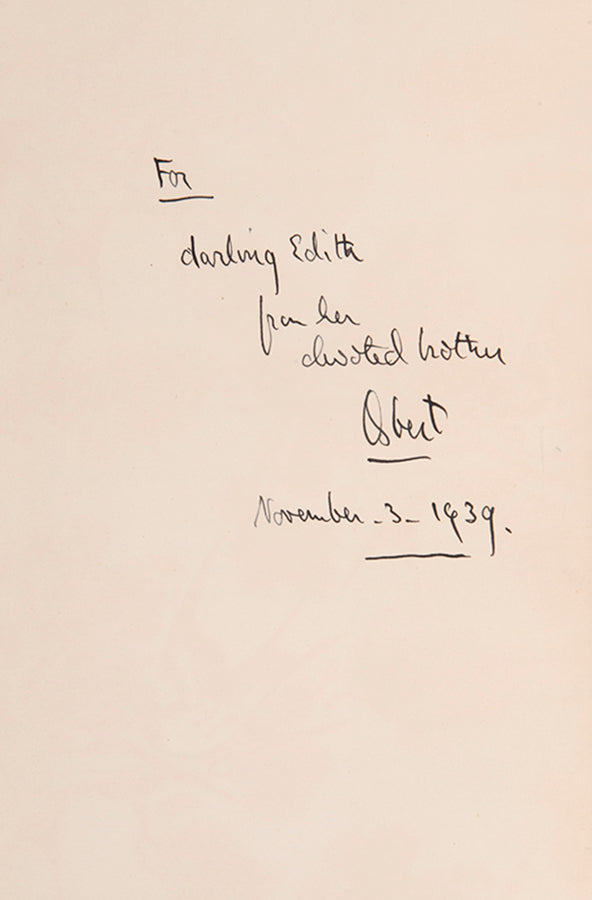 For
darling Edith
from her
devoted brother
Osbert
November - 3 - 1939.